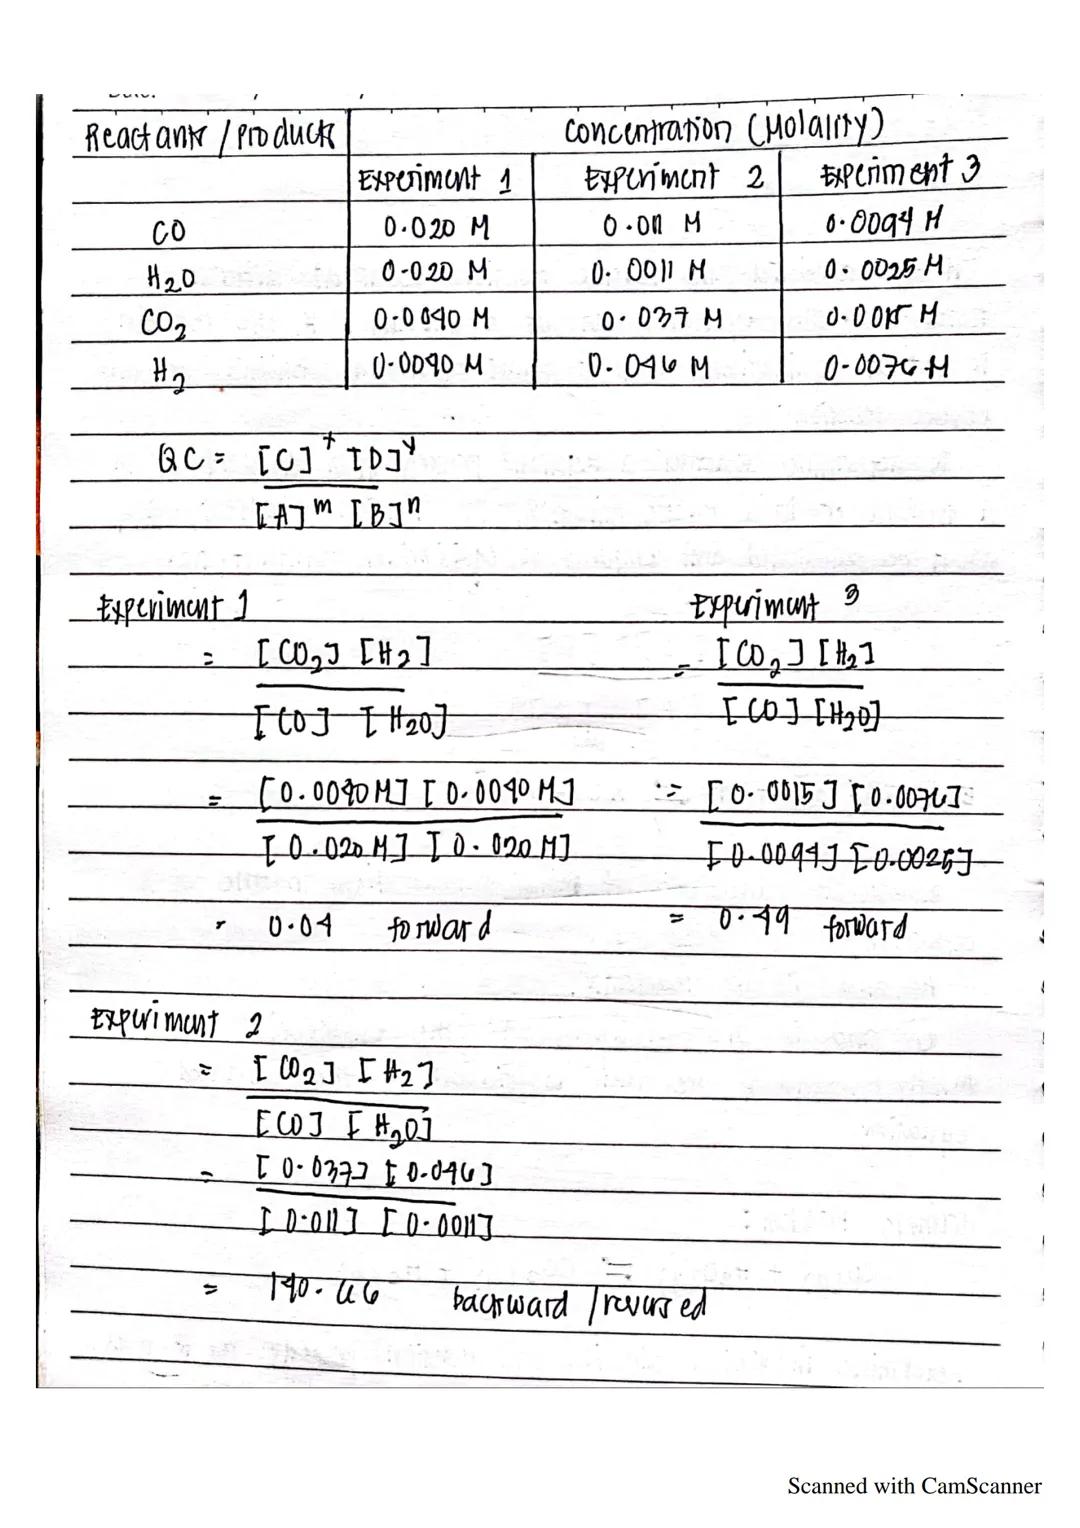 Reactants / products Concentration (Molality)
Experiment 1 Experiment 2 Experiment 3
CO 0.020 M 0.011 M 0.0094 M
H2O 0.020 M 0.0011 M 0.0025 M
CO2 0.0040 M 0.037 M 0.0015 M
H2 0.0040 M 0.046 M 0.0076 M
QC = [C]x [D]y
[A]m [B]n
Experiment 1
= [CO2] [H2]
[CO] [H2O]
= [0.0040 M] [0.0040 M]
[0.020 M] [0.020 M]
= 0.04 forward
Experiment 3
= [CO2] [H2]
[CO] [H2O]
= [0.0015] [0.0076]
[0.0094] [0.0025]
= 0.49 forward
Experiment 2
= [CO2] [H2]
[CO] [H2O]
= [0.037] [0.046]
[0.011] [0.0011]
= 140.66 backward / reversed
Scanned with CamScanner